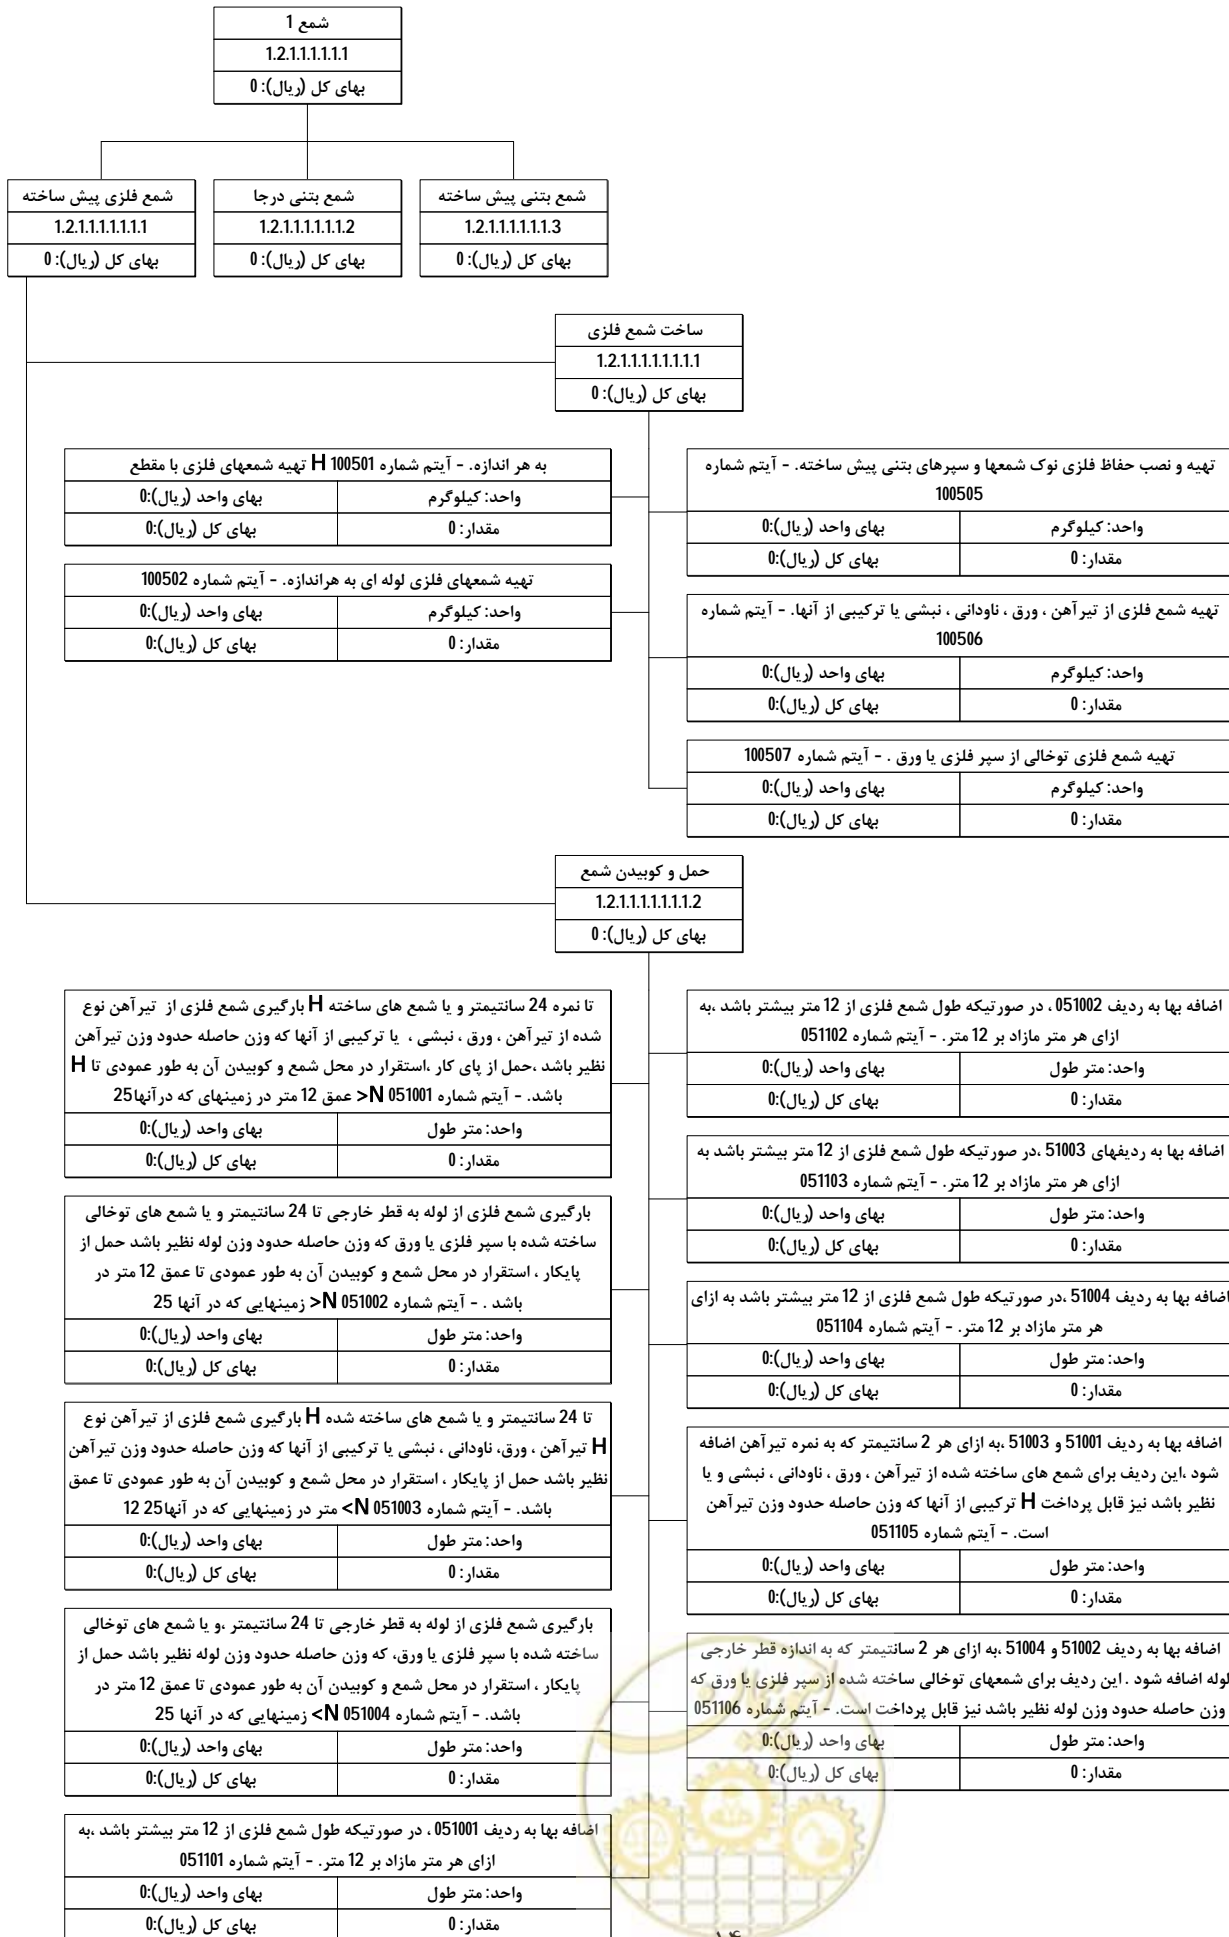 شمع 1
1.2.1.1.1.1.1.1
بهای کل (ریال): 0
شمع فلزی پیش ساخته
1.2.1.1.1.1.1.1.1
بهای کل (ریال): 0
شمع بتنی درجا
1.2.1.1.1.1.1.1.2
بهای کل (ریال): 0
شمع بتنی پیش ساخته
1.2.1.1.1.1.1.1.3
بهای کل (ریال): 0
ساخت شمع فلزی
1.2.1.1.1.1.1.1.1.1
بهای کل (ریال): 0
به هر اندازه. - آیتم شماره 100501 H تهیه شمعهای فلزی با مقطع
واحد: کیلوگرم
بهای واحد (ریال):0
مقدار: 0
بهای کل (ریال):0
تهیه شمعهای فلزی لوله ای به هراندازه. - آیتم شماره 100502
واحد: کیلوگرم
بهای واحد (ریال):0
مقدار: 0
بهای کل (ریال):0
تهیه و نصب حفاظ فلزی نوک شمعها و سپرهای بتنی پیش ساخته. - آیتم شماره
100505
واحد: کیلوگرم
بهای واحد (ریال):0
مقدار: 0
بهای کل (ریال):0
تهیه شمع فلزی از تیرآهن ، ورق ، ناودانی ، نبشی یا ترکیبی از آنها. - آیتم شماره
100506
واحد: کیلوگرم
بهای واحد (ریال):0
مقدار: 0
بهای کل (ریال):0
تهیه شمع فلزی توخالی از سپر فلزی یا ورق . - آیتم شماره 100507
واحد: کیلوگرم
بهای واحد (ریال):0
مقدار: 0
بهای کل (ریال):0
حمل و کوبیدن شمع
1.2.1.1.1.1.1.1.1.2
بهای کل (ریال): 0
تا نمره 24 سانتیمتر و یا شمع های ساخته H بارگیری شمع فلزی از تیرآهن نوع
شده از تیرآهن ، ورق ، نبشی ، یا ترکیبی از آنها که وزن حاصله حدود وزن تیرآهن
نظیر باشد ،حمل از پای کار ،استقرار در محل شمع و کوبیدن آن به طور عمودی تا H
باشد. - آیتم شماره 051001 N< عمق 12 متر در زمینهای که درآنها25
واحد: متر طول
بهای واحد (ریال):0
مقدار: 0
بهای کل (ریال):0
بارگیری شمع فلزی از لوله به قطر خارجی تا 24 سانتیمتر و یا شمع های توخالی
ساخته شده با سپر فلزی یا ورق که وزن حاصله حدود وزن لوله نظیر باشد حمل از
پایکار ، استقرار در محل شمع و کوبیدن آن به طور عمودی تا عمق 12 متر در
باشد . - آیتم شماره 051002 N< زمینهایی که در آنها 25
واحد: متر طول
بهای واحد (ریال):0
مقدار: 0
بهای کل (ریال):0
تا 24 سانتیمتر و یا شمع های ساخته شده H بارگیری شمع فلزی از تیرآهن نوع
H تیرآهن ، ورق، ناودانی ، نبشی یا ترکیبی از آنها که وزن حاصله حدود وزن تیرآهن
نظیر باشد حمل از پایکار ، استقرار در محل شمع و کوبیدن آن به طور عمودی تا عمق
باشد. - آیتم شماره 051003 N> متر در زمینهایی که در آنها25 12
واحد: متر طول
بهای واحد (ریال):0
مقدار: 0
بهای کل (ریال):0
بارگیری شمع فلزی از لوله به قطر خارجی تا 24 سانتیمتر ،و یا شمع های توخالی
ساخته شده با سپر فلزی یا ورق، که وزن حاصله حدود وزن لوله نظیر باشد حمل از
پایکار ، استقرار در محل شمع و کوبیدن آن به طور عمودی تا عمق 12 متر در
باشد. - آیتم شماره 051004 N> زمینهایی که در آنها 25
واحد: متر طول
بهای واحد (ریال):0
مقدار: 0
بهای کل (ریال):0
اضافه بها به ردیف 051001 ، در صورتیکه طول شمع فلزی از 12 متر بیشتر باشد ،به
ازای هر متر مازاد بر 12 متر. - آیتم شماره 051101
واحد: متر طول
بهای واحد (ریال):0
مقدار: 0
بهای کل (ریال):0
اضافه بها به ردیف 051002 ، در صورتیکه طول شمع فلزی از 12 متر بیشتر باشد ،به
ازای هر متر مازاد بر 12 متر. - آیتم شماره 051102
واحد: متر طول
بهای واحد (ریال):0
مقدار: 0
بهای کل (ریال):0
اضافه بها به ردیفهای 51003 ،در صورتیکه طول شمع فلزی از 12 متر بیشتر باشد به
ازای هر متر مازاد بر 12 متر. - آیتم شماره 051103
واحد: متر طول
بهای واحد (ریال):0
مقدار: 0
بهای کل (ریال):0
اضافه بها به ردیف 51004 ،در صورتیکه طول شمع فلزی از 12 متر بیشتر باشد به ازای
هر متر مازاد بر 12 متر. - آیتم شماره 051104
واحد: متر طول
بهای واحد (ریال):0
مقدار: 0
بهای کل (ریال):0
اضافه بها به ردیف 51001 و 51003 ،به ازای هر 2 سانتیمتر که به نمره تیرآهن اضافه
شود ،این ردیف برای شمع های ساخته شده از تیرآهن ، ورق ، ناودانی ، نبشی و یا
نظیر باشد نیز قابل پرداخت H ترکیبی از آنها که وزن حاصله حدود وزن تیرآهن
است. - آیتم شماره 051105
واحد: متر طول
بهای واحد (ریال):0
مقدار: 0
بهای کل (ریال):0
اضافه بها به ردیف 51002 و 51004 ،به ازای هر 2 سانتیمتر که به اندازه قطر خارجی
لوله اضافه شود . این ردیف برای شمعهای توخالی ساخته شده از سپر فلزی یا ورق که
وزن حاصله حدود وزن لوله نظیر باشد نیز قابل پرداخت است. - آیتم شماره 051106
واحد: متر طول
بهای واحد (ریال):0
مقدار: 0
بهای کل (ریال):0